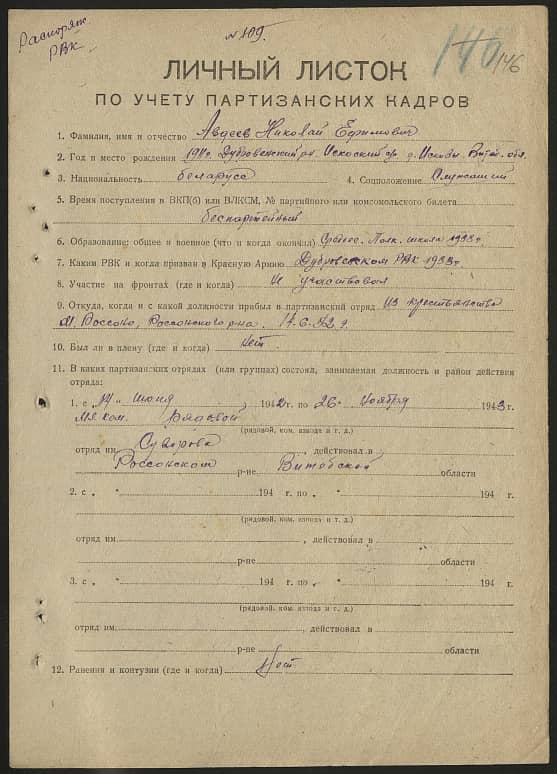 Распоряж.
РВК.
№ 109.
146
146
ЛИЧНЫЙ ЛИСТОК
ПО УЧЕТУ ПАРТИЗАНСКИХ КАДРОВ
1. Фамилия, имя и отчество Авдеев Николай Ефимович
2. Год и место рождения Дубровенский рн. Витеб. обл.
3. Национальность беларусс 4. Соцположение Служащий
5. Время поступления в ВКП(б) или ВЛКСМ, № партийного или комсомольского билета
беспартейный
6. Образование: общее и военное (что и когда окончил) Среднее. Полк. школа 1933 г.
7. Каким РВК и когда призван в Красную Армию Дубровенском РВК 1933 г
8. Участие на фронтах (где и когда) Не участвовал
9. Откуда, когда и с какой должности прибыл в партизанский отряд из крестьянства
М. Россоно, Россонского р-на. 6-42 г.
10. Был ли в плену (где и когда) Нет.
11. В каких партизанских отрядах (или группах) состоял, занимаемая должность и район действия
отряда:
1. с „ июня 1942 г. по „26" Ноября 1943 г.
рядовой
(рядовой, ком. взвода и т. д.)
отряд им. Суворова, действовал в
Россонском р-не Витебской области
2. с „ " 194 г. по „ " 194 г.
(рядовой, ком. взвода и т. д.)
отряд им. , действовал в
р-не области
3. с „ " 194 г. по „ " 194 г.
(рядовой, ком. взвода и т. д.)
отряд им. , действовал в
р-не области
12. Ранения и контузии (где и когда) Нет